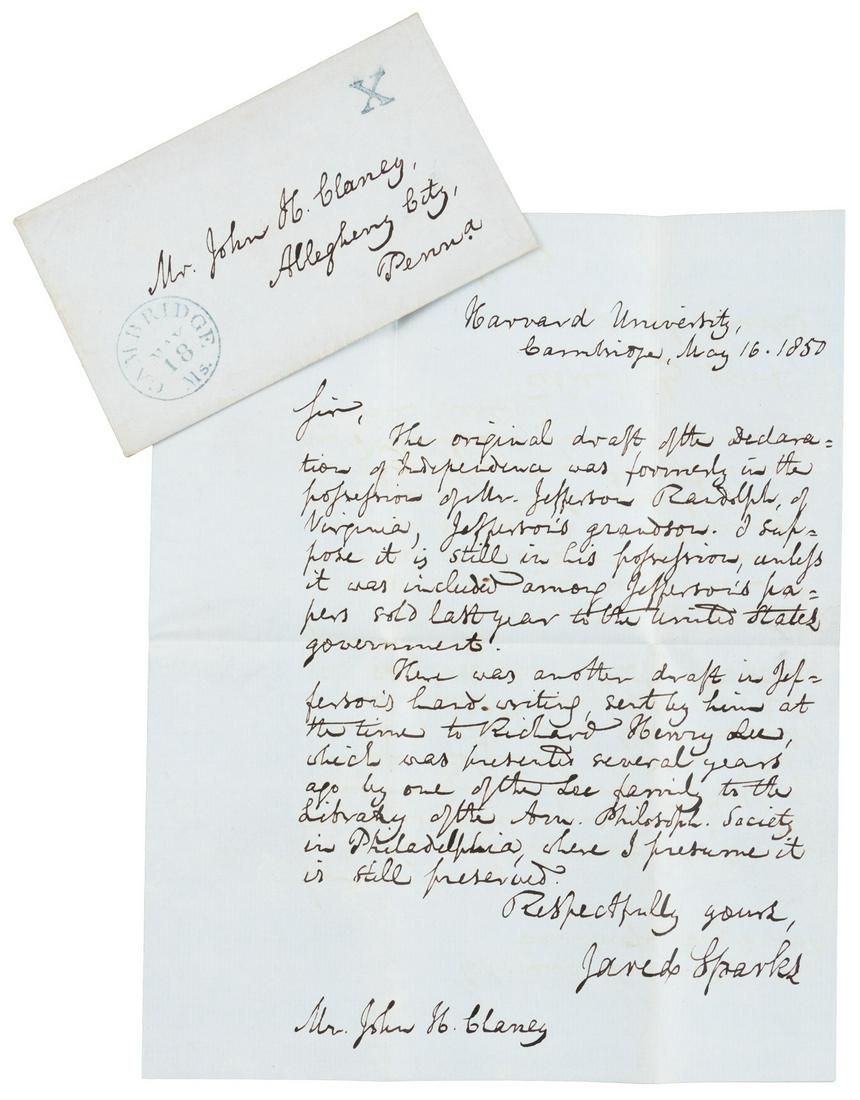 X
Mr. John H. Claney,
Allegheny City,
Penna
CAMBRIDGE
MAY
18
Ms.
Harvard University,
Cambridge, May 16. 1850
Sir,
The original draft of the Declara=
tion of Independence was formerly in the
possession of Mr. Jefferson Randolph, of
Virginia, Jefferson's grandson. I sup=
pose it is still in his possession, unless
it was included among Jefferson's pa=
pers sold last year to the United States
government.
There was another draft in Jef=
ferson's hand-writing, sent by him at
the time to Richard Henry Lee,
which was presented several years
ago by one of the Lee family to the
Library of the Am. Philosoph. Society
in Philadelphia, where I presume it
is still preserved.
Respectfully yours,
Jared Sparks
Mr. John H. Claney